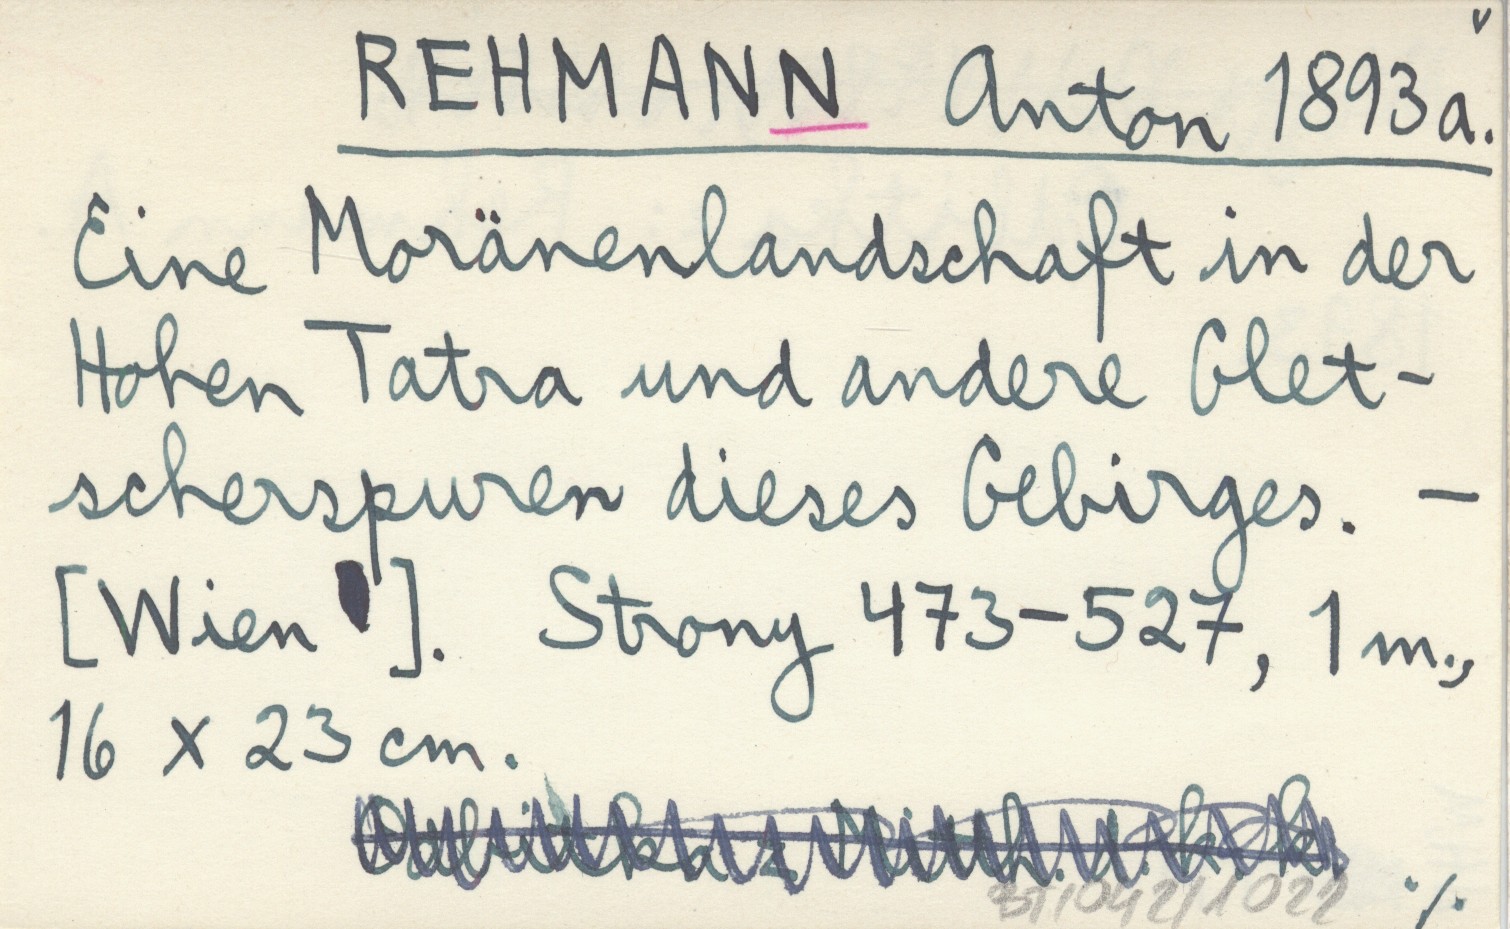 REHMANN Anton 1893a.
Eine Moränenlandschaft in der
Hohen Tatra und andere Glet-
scherspuren dieses Gebirges. —
[Wien ]. Strony 473-527, 1 m.,
16 x 23 cm.
Odbitka z Mitth. d. k. k.
BT/042/1022
./.